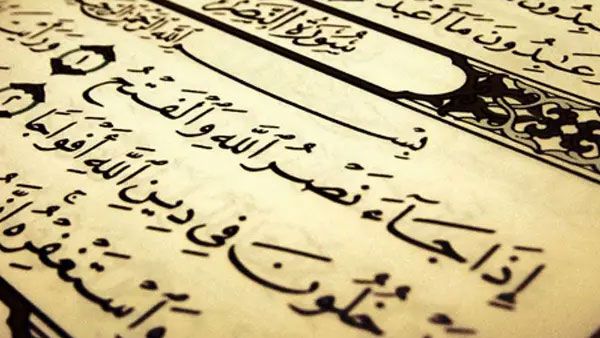 عَـٰبِدُونَ مَآ أَعْبُدُ
سُورَةُ النَّصْرِ
بِسْمِ ٱللَّهِ ٱلرَّحْمَـٰنِ ٱلرَّحِيمِ
إِذَا جَآءَ نَصْرُ ٱللَّهِ وَٱلْفَتْحُ ١ وَرَأَيْتَ
خُلُونَ فِي دِينِ ٱللَّهِ أَفْوَاجًا ٢
وَٱسْتَغْفِرْهُ